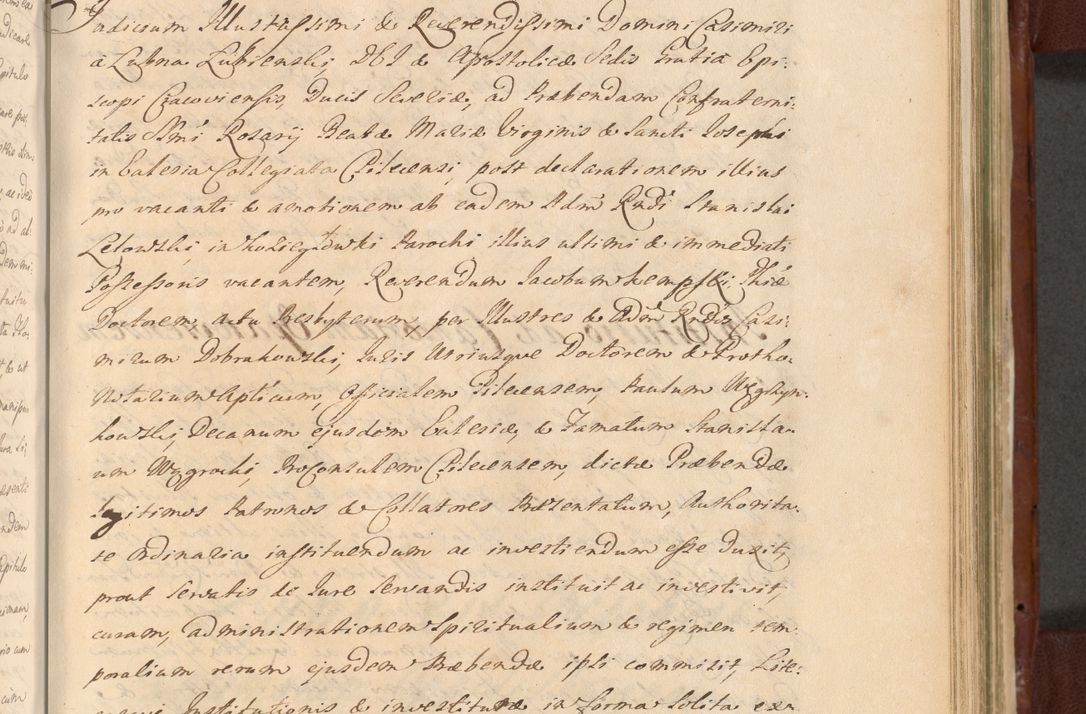 Judicium Illustrissimi & Reverendissimi Domini Casimiri
a Łubna Łubienski, DEI & Apostolicæ Sedis Gratia Epi-
scopi Cracoviensis, Ducis Severiæ, ad Præbendam Confraterni-
tatis SSmi Rosarij Beatæ Mariæ Virginis & Sancti Josephi
in Eclesia Collegiata Pilecensi, post declarationem illius
pro vacanti & amotionem ab eadem Adm Rndi Stanislai
Letowski, in Koziegłowki Parochi illius ultimi & immediati
Possessoris vacantem, Reverendum Jacobum Kempski, Phiæ
Doctorem actu Presbyterum, per Illustres & Adm Rndos Casi-
mirum Dobrakowski, Juris Utriusque Doctorem & Protho-
Notarium Aplicum, Officialem Pilecensem, Paulum
kowski, Decanum ejusdem Eclesiæ, & Famatum Stanisla-
um Wągrocki, ProConsulem Pilecensem, dictæ Præbendæ
legitimos Patronos & Collatores Præzentatum, Authorita-
te Ordinaria instituendum ac investiendum esse duxit,
prout servatis de Jure servandis instituit ac investivit,
curam, administrationem Spiritualium & regimen tem-
poralium rerum ejusdem Præbendæ ipsi commisit, Lite-
Institutionis & investituræ in forma solita ex-